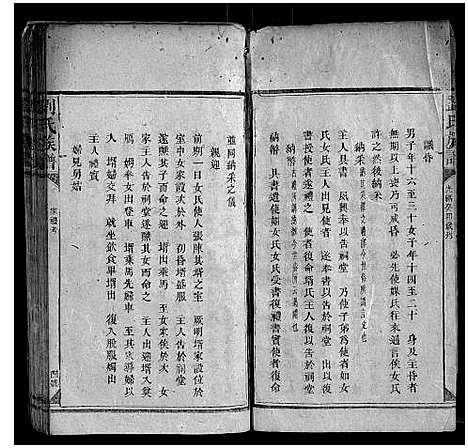 議昏
男子年十六至三十女子年十四至二十 身及主昏者
期以上喪乃可成昏 必先使媒氏往來通言俟女氏
許之然後納采
納采
主人具書 夙興奉以告祠堂 乃使子弟爲使者如女
氏女氏主人出見使者 遂奉書以告于祠堂 出以復
書授使者遂禮之 使者復命壻氏主人復以告于祠堂
納幣
具書遣使如女氏女氏受書復書禮賓使者復命
並同納采之儀
親迎
前期一日女氏使人張陳其壻之室 厥明壻家設位於
室中女家設次於外 初昏壻盛服 主人告于祠堂
遂醮其子而命之迎 壻出乘馬 至女家俟於次 女
家主人告於祠堂遂醮其女而命之 主人出迎壻入奠
鴈 姆奉女出登車 壻乘馬先歸車 至其家導婦以
入 壻婦交拜 就坐飲食畢壻出 復入脫服燭出
主人禮賓
婦見舅姑
劉氏族譜